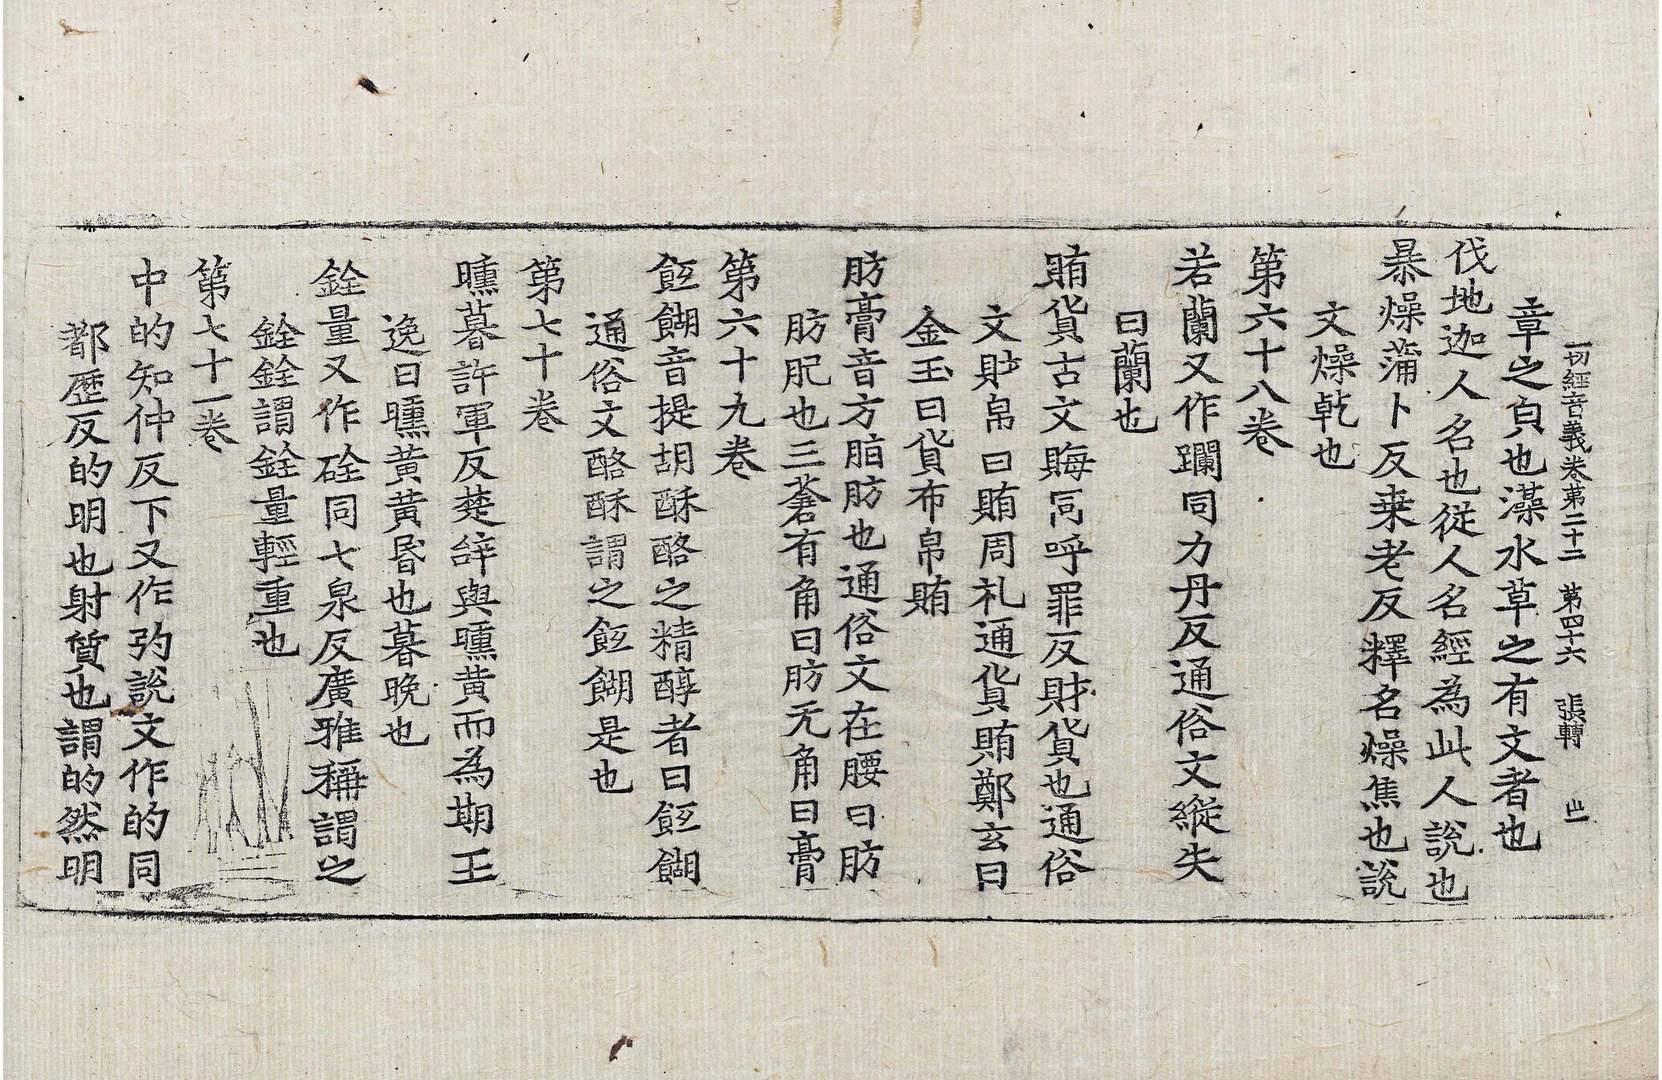 一切經音義卷第二十二 第四十六 張轉
章之㒵也藻水草之有文者也
伐地迦人名也從人名經為此人說也
暴燥蒲卜反桒老反釋名燥焦也說
文燥乾也
第六十八卷
若蘭又作躝同力丹反通俗文縱失
曰蘭也
賄貨古文晦同呼罪反財貨也通俗
文財帛曰賄周礼通貨賄鄭玄曰
金玉曰貨布帛賄
肪膏音方脂肪也通俗文在腰曰肪
肪肥也三蒼有角曰肪无角曰膏
第六十九卷
䬺餬音提胡酥酪之精醇者曰䬺餬
通俗文酪酥謂之䬺餬是也
第七十卷
曛暮許軍反楚辝與曛黄而為期王
逸曰曛黄黄昬也暮晚也
銓量又作硂同七泉反廣雅稱謂之
銓銓謂銓量輕重也
第七十一卷
中的知仲反下又作㐸說文作的同
都歷反的明也射質也謂的然明